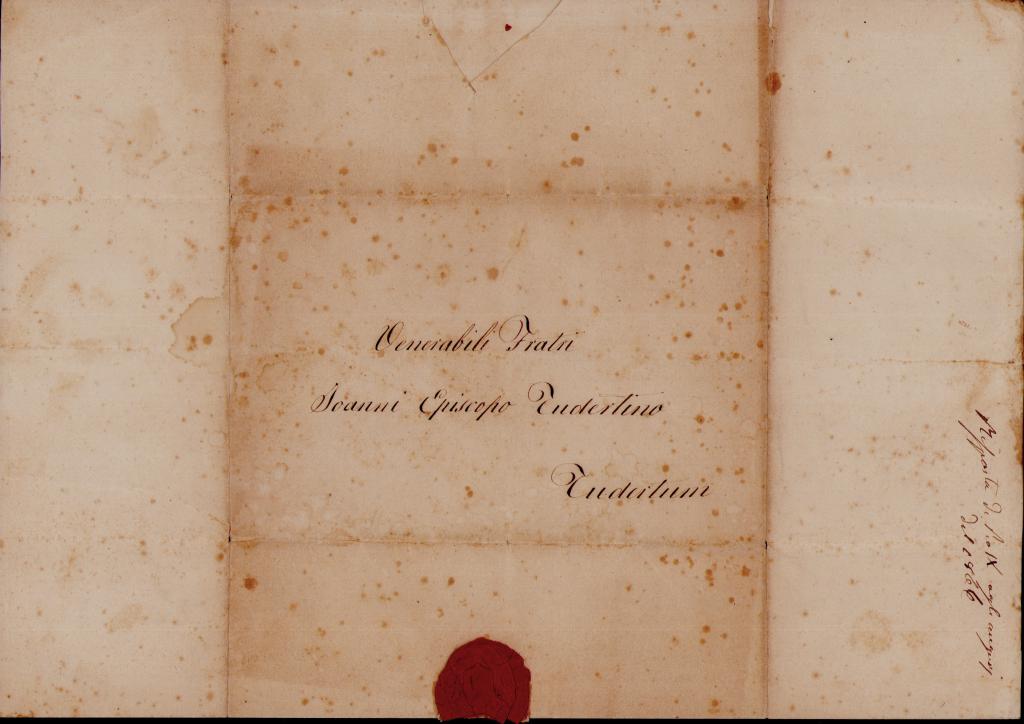 Venerabili Fratri
Joanni Episcopo Tudertino
Tudertum
Risposta di Pio IX agli augurj
del 1866